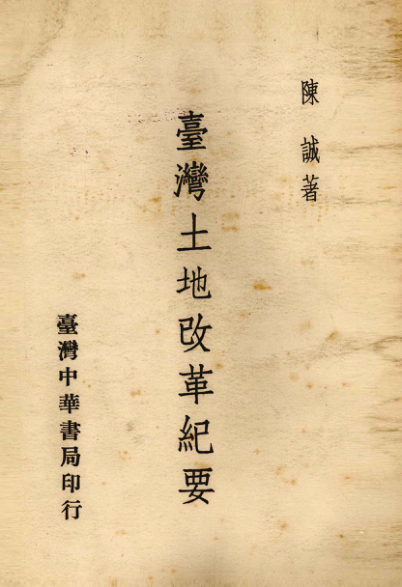 陳誠著
臺灣土地改革紀要
臺灣中華書局印行